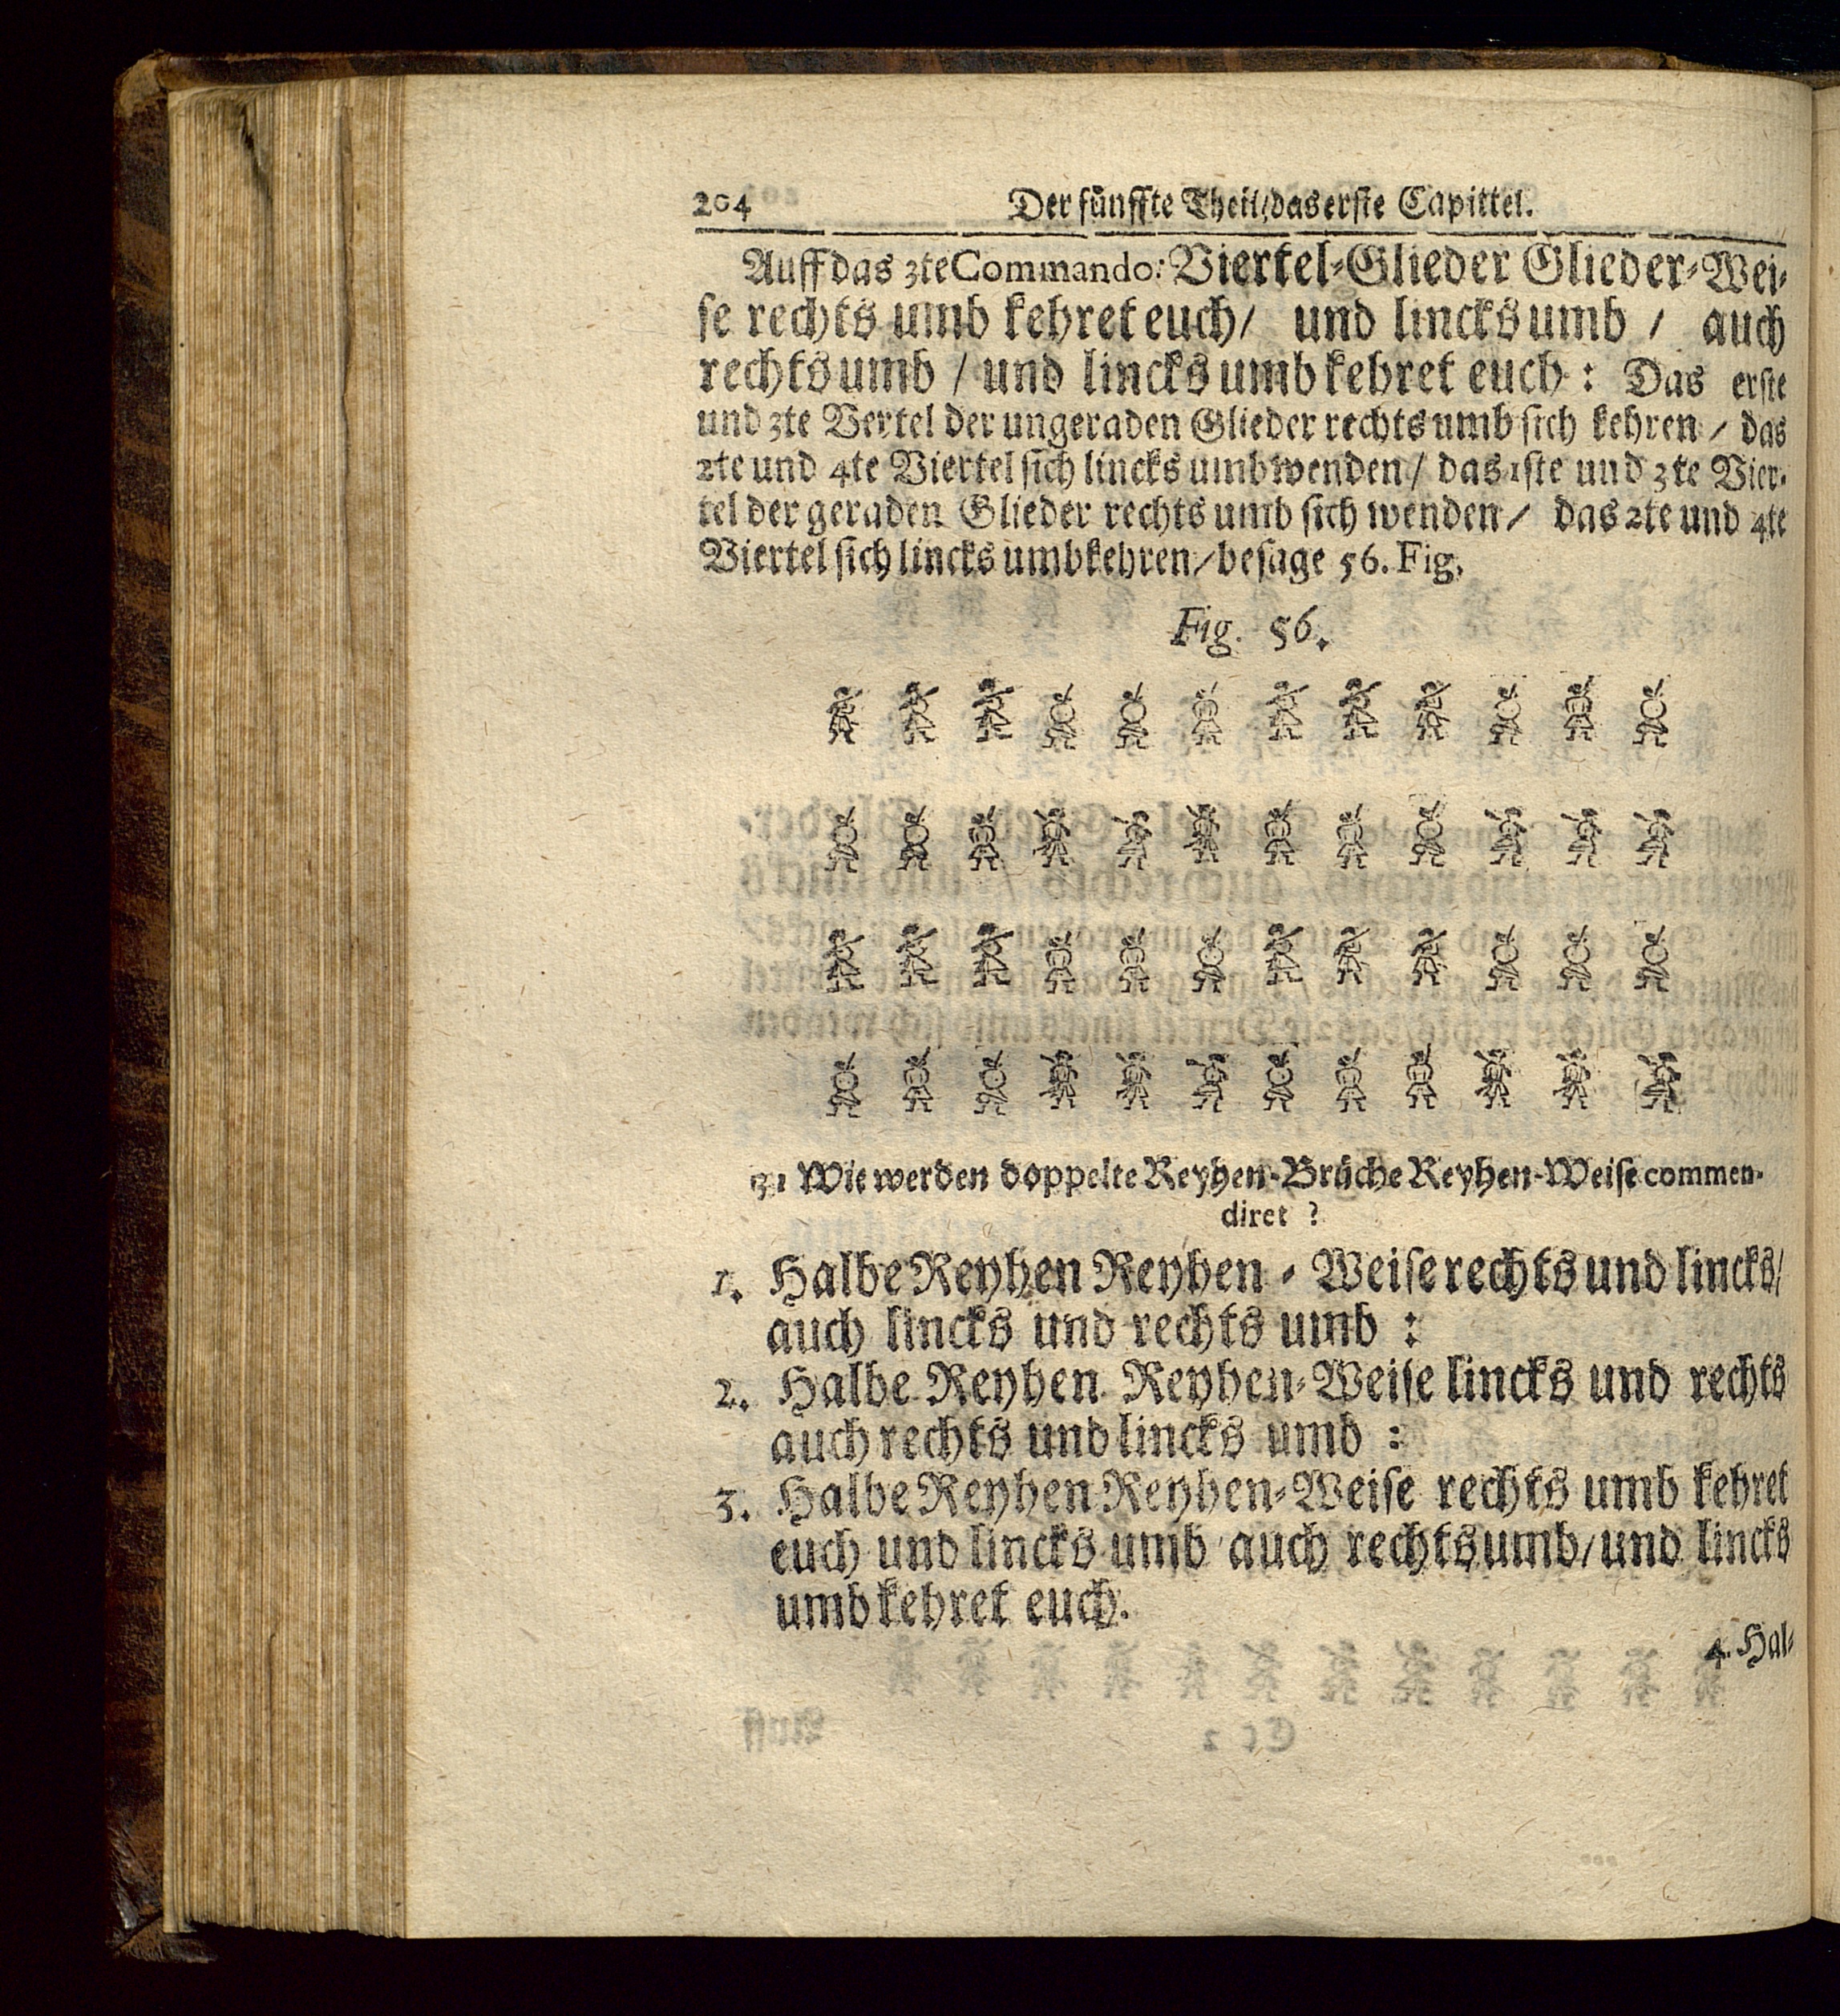 204 Der fünffte Theil/ das erste Capittel.
Auff das 3te Commando: Viertel-Glieder Glieder-Wei-
se rechts umb kehret euch/ und lincks umb / auch
rechts umb / und lincks umb kehret euch: Das erste
und 3te Vertel der ungeraden Glieder rechts umb sich kehren / das
2te und 4te Viertel sich lincks umb wenden / das 1ste und 3te Vier-
tel der geraden Glieder rechts umb sich wenden / das 2te und 4te
Viertel sich lincks umbkehren / besage 56. Fig.
Fig. 56.
Wie werden doppelte Reyhen-Brüche Reyhen-Weise commen-
diret ?
1. Halbe Reyhen Reyhen - Weise rechts und lincks/
auch lincks und rechts umb :
2. Halbe Reyhen Reyhen-Weise lincks und rechts
auch rechts und lincks umb :
3. Halbe Reyhen Reyhen-Weise rechts umb kehret
euch und lincks umb auch rechts umb/ und lincks
umb kehret euch.
4. Hal-